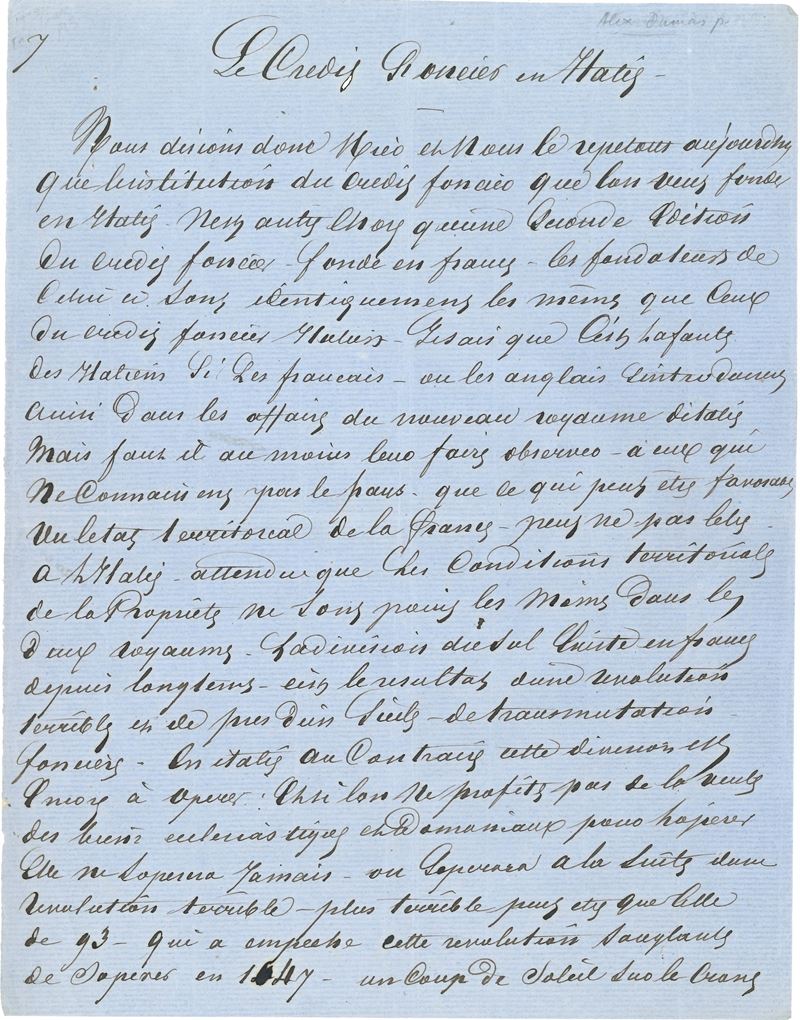 Alex Dumas p
7
Le Credit Foncier en Italie —
Nous disions donc hier et Nous le repetons aujourdhui
que linstitution du credit foncier que lon veut fonder
en Italie. Nest autre Chose qu'une Seconde Edition
du credit foncier — fondé en france — les fondateurs de
Celui ci Sont identiquement les mêmes que Ceux
du credit foncier Italien — Je sais que C'est la faute
des Italiens Si Les francais — ou les anglais S'introduisent
ainsi Dans les affaires du nouveau royaume d'italie
Mais faut il au moins leur faire observer — à eux qui
Ne Connaissent pas le pays — que ce qui peut être favorable
Vu letat territorial de la France — peut ne pas letre
a l'Italie — attendu que Les Conditions territoriales
de la Propriété ne Sont point les Mêmes Dans les
Deux royaumes. La division du Sol Existe en france
depuis longtems — c'est le resultat d'une revolution
terrible et de pres d'un Siecle — de transmutations
foncieres — En italie au Contraire cette division est
Encore à operer. Et si lon Ne profite pas de la vente
des biens ecclesiastiques et Domaniaux pour l'operer
Elle ne Soperera Jamais — ou Soperera a la Suite d'une
revolution terrible — plus terrible peut etre que Celle
de 93 — qui a empeché cette revolution Sanglante
de Soperer en 1647 — un Coup de Soleil sur le Crane